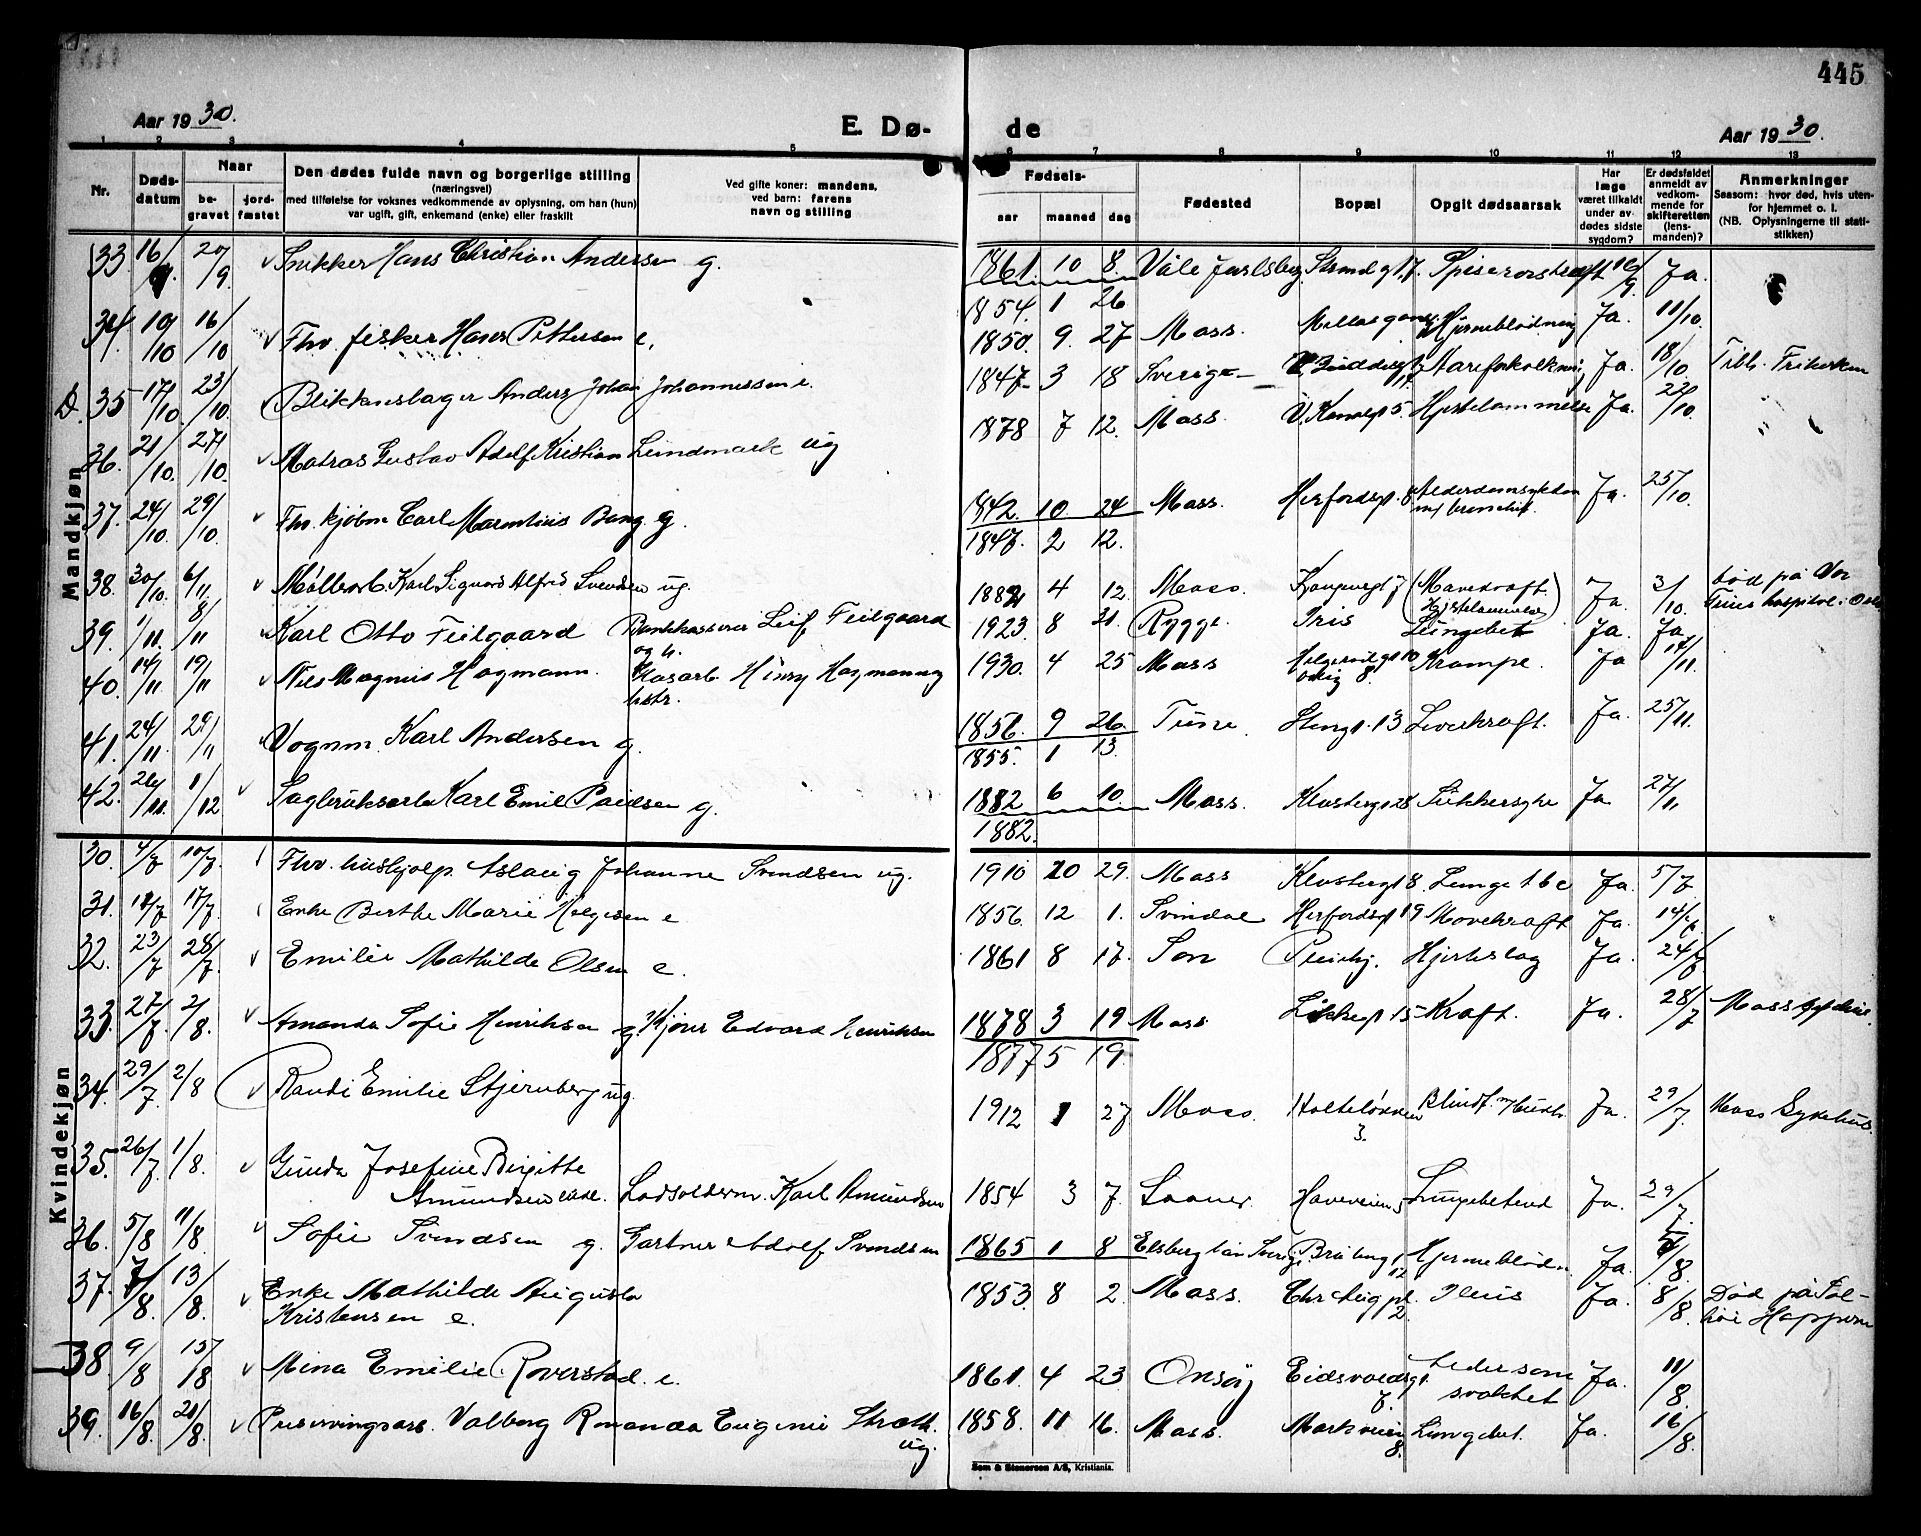 445
Aar 1930.
E. Dø-
de
Aar 1930.
1 2 3 4 5 6 7 8 9 10 11 12 13
Nr.
Døds-
datum
Naar
be-
gravet
jord-
fæstet
Den dødes fulde navn og borgerlige stilling
(næringsvei)
med tilføielse for voksnes vedkommende av oplysning, om han (hun)
var ugift, gift, enkemand (enke) eller fraskilt
Ved gifte koner: mandens,
ved barn: farens
navn og stilling
Fødsels-
aar maaned dag
Fødested
Bopæl
Opgit dødsaarsak
Har
læge
været tilkaldt
under av-
dødes sidste
sygdom?
Er dødsfaldet
anmeldt av
vedkom-
mende for
skifteretten
(lens-
manden)?
Anmerkninger
Saasom: hvor død, hvis uten-
for hjemmet o. l.
(NB. Oplysningerne til stati-
stikken)
Mandkjøn
33. 16/9 20/9 Snikker Hans Christian Andersen g. 1861. 10 8. Våle Jarlsberg Strandgt. 17. 16/9 Ja.
1854 1 26
34. 10/10 16/10 Fhv. fisker Hans Pettersen e. 1850. 9. 27 Moss. Hjerneblødning Ja. 11/10.
D. 35 17/10. 23/10. Blikkenslager Anders Johan Johannessen e. 1847 3 18 Sverige Aareforkalkning Ja. 18/10.
36. 21/10. 27/10. Matros Gustav Adolf Kristian Lindmark ug 1878 7 12. Moss. V. Kanalgt 5. Hjertelammelse Ja. 22/10.
37. 24/10. 29/10. Fhv. kjøbm Carl Marentius Bang. g. 1842. 10. 24 Moss. Herfordsgt. 8 Alderdomsykdom m/ bronchit. Ja. 25/10.
1847. 2 12.
38. 30/10. 6/11. Møllearb. Karl Sigvard Alfred Svendsen ug. 4 12. Moss. Kongensgt 7 (Mavekraft. Hjertelammelse) Ja. 3/10. Død på Vor
Frues hospital. Oslo
39. 1/11. 8/11 Karl Otto Feilgaard Bankkasserer Leif Feilgaard
og h. 1923. 8 21. Rygge Iris Lungebet Ja. Ja.
40. 14/11 19/11 Nils Magnus Hagmann. Henry Hagmann og
hstr. 1930. 4 25 Moss Krampe. Ja 14/11.
41. 24/11. 29/11 Vognm. Karl Andersen g. 1856. 9 26. Tune Stengt. 13 Leverkraft. Ja. 25/11.
1855. 1 13.
42. 26/11. 1/12 Sagbruksarb Karl Emil Paulsen g. 1882 6 10. Moss. Klostergt 28 Sukkersyke Ja 27/11
1882.
Kvindekjøn
30. 4/7 10/7. Fhv. hushjelp Aslaug Johanne Svendsen ug. 1910 10 29. Moss Klostergt 8. Lungetbc Ja. 5/7
31. 17/7 Enke Berthe Marie Helgesen e 1856. 12 1. Svindal Herfordsgt 19 Mavekraft Ja.
32. 23/7 28/7 Emilie Mathilde Olsen e. 1861 8 17. Son Hjerteslag Ja. 24/7
33. 27/7 2/8. Amanda Sofie Henriksen g. Edvard Henriksen 1878 3 19 Moss 15 Kraft. Ja. 28/7
1877 5 19.
34. 29/7. 2/8 Randi Emilie Stjernberg ug. 1912 1 27 Moss. Holteløkken
3. Ja. 29/7. Moss Sykehus.
35. 26/7 1/8. Gunda Josefine Birgitte
Amundsen Lodsolderm. Karl Amundsen 1854 3 7. Saaner. Haveveien 5 Lungebetend Ja. 29/7.
36. 5/8 11/8. Sofie Svendsen g. Gartner Adolf Svendsen 1865 1 8 Hjerneblødn. Ja.
37. 7/8. 13/8. Enke Mathilde Augusta
Kristensen e. 1853. 8 2. Moss. Chr Aug pl.
2. Ileus Ja. 8/8. Død på Sol-
38. 9/8 15/8 Mina Emilie Roverstad. e. 1861. 4 23 Onsøy Eidsvoldsgt.
7. Ja. 11/8.
39. 16/8. 21/8. Preserveringsarb. Valborg Romanda Eugenie
ug. 1858. 11 16. Moss. Markveien
8. Lungebet. Ja. 16/8.
Sem & Stenersen A/S, Kristiania.